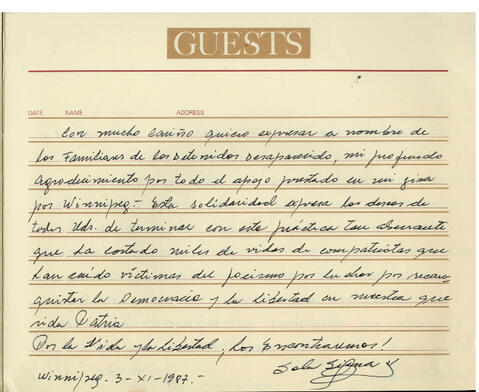 GUESTS
DATE NAME ADDRESS
Con mucho cariño quiero expresar a nombre de
los Familiares de los Detenidos Desaparecido, mi profundo
agradecimiento por todo el apoyo prestado en mi gira
por Winnipeg - Esta solidaridad expresa los deseos de
todos Uds. de terminar con esta práctica tan aberrante
que ha costado miles de vidas de compatriotas que
han caído víctimas del facismo por luchar por recon-
quistar la Democracia y la Libertad en nuestra que-
rida Patria
Por la Vida y la Libertad, los Encontraremos!
Sola Sierra
Winnipeg - 3 - XI - 1987.-